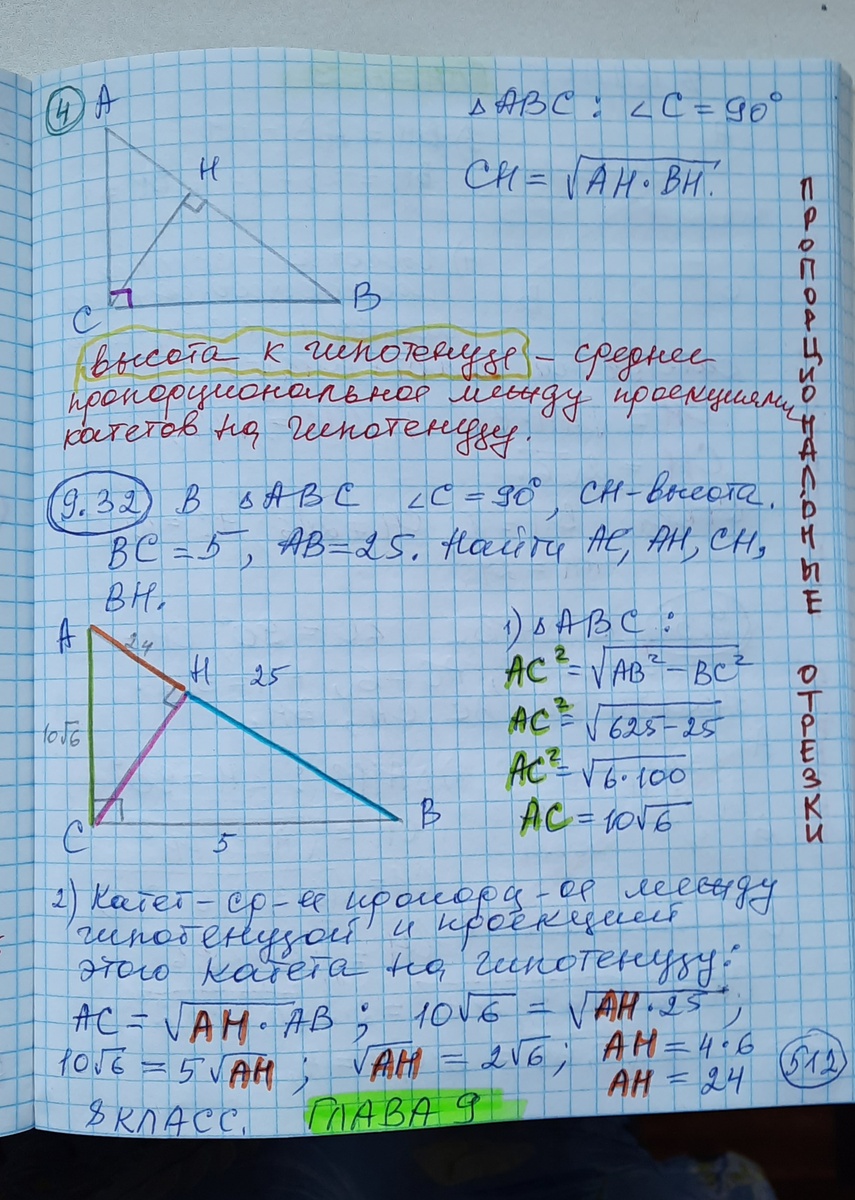 4
A
H
C
B
△ABC: ∠C = 90°
CH = √AH·BH.
высота к гипотенузе – среднее
пропорциональное между проекциями
катетов на гипотенузу.
9.32 В △ABC ∠C = 90°, CH-высота.
BC = 5, AB = 25. Найти AC, AH, CH,
BH.
A
24
H
25
10√6
C
5
B
1) △ABC:
AC² = √AB² – BC²
AC² = √625 – 25
AC² = √6·100
AC = 10√6
2) Катет – ср-ее пропорц-ое между
гипотенузой и проекцией
этого катета на гипотенузу:
AC = √AH·AB ; 10√6 = √AH·25 ;
10√6 = 5√AH ; √AH = 2√6 ; AH = 4·6
AH = 24
512
8 КЛАСС. ГЛАВА 9
ПРОПОРЦИОНАЛЬНЫЕ ОТРЕЗКИ